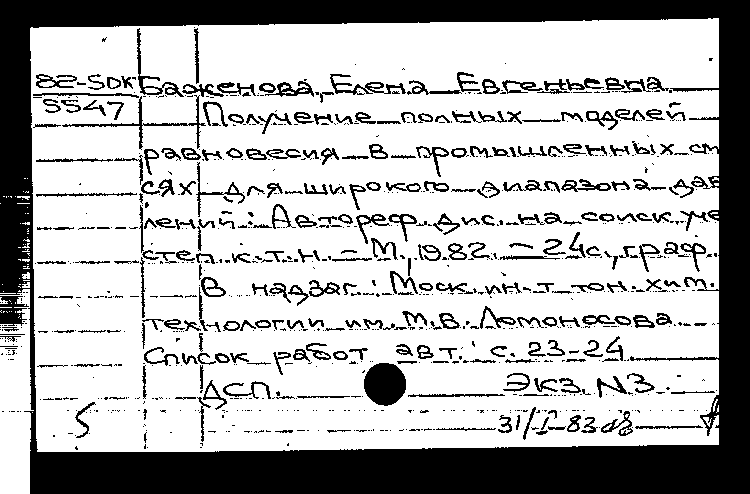 82-5ДК Баженова, Елена Евгеньевна
5547 Получение полных моделей
равновесия в промышленных см
сях для широкого диапазона дав
лений : Автореф. дис. на соиск. уче
степ. к.т.н. – М., 1982. – 24с., граф.
В надзаг.: Моск. ин-т тон. хим.
технологии им. М.В. Ломоносова.
Список работ авт.: с. 23-24
ДСП. Экз. N3.
5 31/I-83